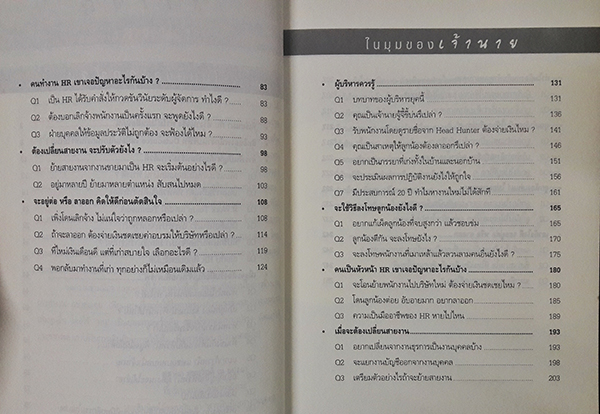 • คนทำงาน HR เขาเจอปัญหาอะไรกันบ้าง ? 83
Q1 เป็น HR ได้รับคำสั่งให้กวดขันวินัยระดับผู้จัดการ ทำไงดี ? 83
Q2 ต้องบอกเลิกจ้างพนักงานเป็นครั้งแรก จะพูดยังไงดี ? 88
Q3 ฝ่ายบุคคลให้ข้อมูลประวัติไม่ถูกต้อง จะฟ้องได้ไหม ? 93
• ต้องเปลี่ยนสายงาน จะปรับตัวยังไง ? 98
Q1 ย้ายสายงานจากงานขายมาเป็น HR จะเริ่มต้นอย่างไรดี ? 98
Q2 อยู่มาหลายปี ย้ายมาหลายตำแหน่ง สับสนไปหมด 103
• จะอยู่ต่อ หรือ ลาออก คิดให้ดีก่อนตัดสินใจ 108
Q1 เพิ่งโดนเลิกจ้าง ไม่แน่ใจว่าถูกหลอกหรือเปล่า ? 108
Q2 ถ้าจะลาออก ต้องจ่ายเงินชดเชยค่าอบรมให้บริษัทหรือเปล่า ? 114
Q3 ที่ใหม่เงินเดือนดี แต่ที่เก่าสบายใจ เลือกอะไรดี ? 119
Q4 พอกลับมาทำงานที่เก่า ทุกอย่างก็ไม่เหมือนเดิมแล้ว 124
ในมุมของเจ้านาย
• ผู้บริหารควรรู้ 131
Q1 บทบาทของผู้บริหารยุคนี้ 131
Q2 คุณเป็นเจ้านายจู้จี้ขี้บ่นรึเปล่า ? 136
Q3 รับพนักงานโดยดูรายชื่อจาก Head Hunter ต้องจ่ายเงินไหม ? 141
Q4 คุณเป็นสาเหตุให้ลูกน้องต้องลาออกหรือเปล่า ? 146
Q5 อยากเป็นภรรยาที่เก่งทั้งในบ้านและนอกบ้าน 151
Q6 จะประเมินผลการปฏิบัติงานยังไงให้ถูกใจ 156
Q7 มีประสบการณ์ 20 ปี ทำไมหางานใหม่ไม่ได้สักที 161
• จะใช้วิธีลงโทษลูกน้องยังไงดี ? 165
Q1 อยากแก้เผ็ดลูกน้องที่จบสูงกว่า แล้วชอบข่ม 165
Q2 ลูกน้องตีกัน จะลงโทษยังไง ? 170
Q3 จะลงโทษพนักงานที่เมาเหล้าแล้วลวนลามคนอื่นยังไงดี ? 175
• คนเป็นหัวหน้า HR เขาเจอปัญหาอะไรกันบ้าง 180
Q1 จะโอนย้ายพนักงานไปบริษัทใหม่ ต้องจ่ายเงินชดเชยไหม ? 180
Q2 โดนลูกน้องต่อย อับอายมาก อยากลาออก 185
Q3 ความเป็นมืออาชีพของ HR หายไปไหน 189
• เมื่อจะต้องเปลี่ยนสายงาน 193
Q1 อยากเปลี่ยนจากงานธุรการเป็นงานบุคคลบ้าง 193
Q2 จะแยกงานบัญชีออกจากงานบุคคล 198
Q3 เตรียมตัวอย่างไรถ้าจะย้ายสายงาน 203